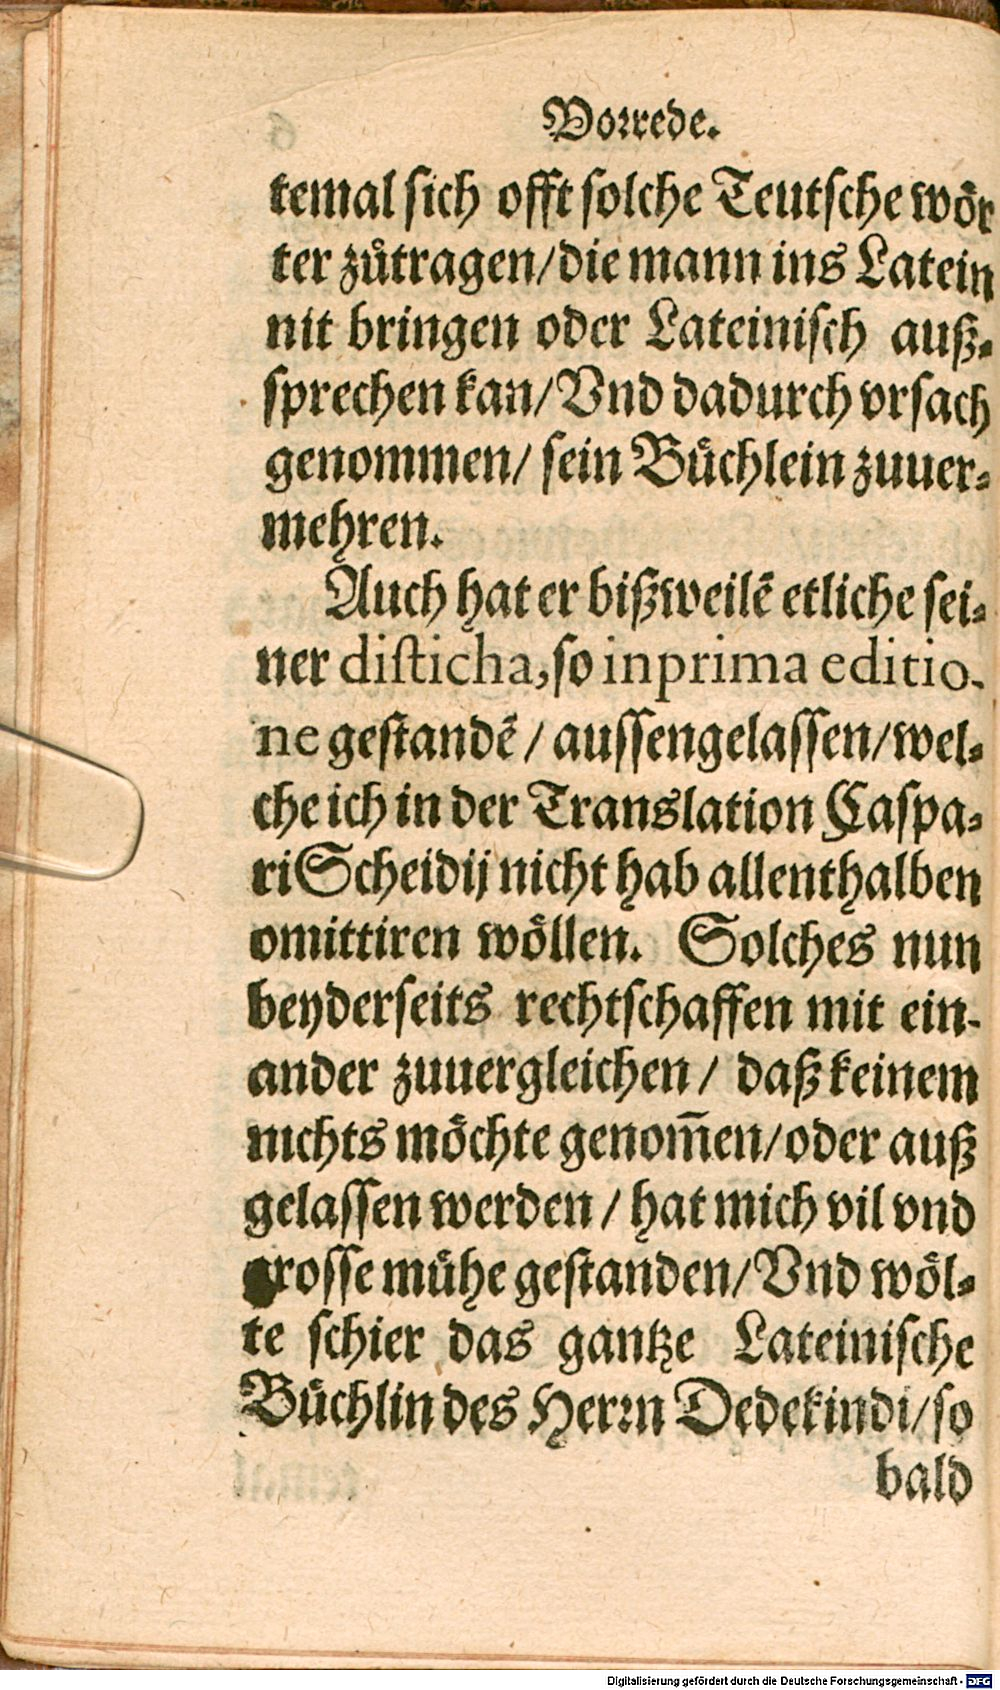 Vorrede.
temal sich offt solche Teutsche woͤr
ter zuͦtragen/die mann ins Latein
nit bringen oder Lateinisch auß-
sprechen kan/Vnd dadurch vrsach
genommen/ sein Buͤchlein zuuer-
mehren.
Auch hat er bißweilẽ etliche sei-
ner disticha, so in prima editio-
ne gestandẽ / aussengelassen/wel-
che ich in der Translation Caspa-
ri Scheidij nicht hab allenthalben
omittiren woͤllen. Solches nun
beyderseits rechtschaffen mit ein-
ander zuuergleichen / daß keinem
nichts moͤchte genom̃en/oder auß
gelassen werden / hat mich vil vnd
grosse muͤhe gestanden/Vnd woͤl-
te schier das gantze Lateinische
Buͤchlin des Herrn Dedekindi/so
bald
Digitalisierung gefördert durch die Deutsche Forschungsgemeinschaft - DFG